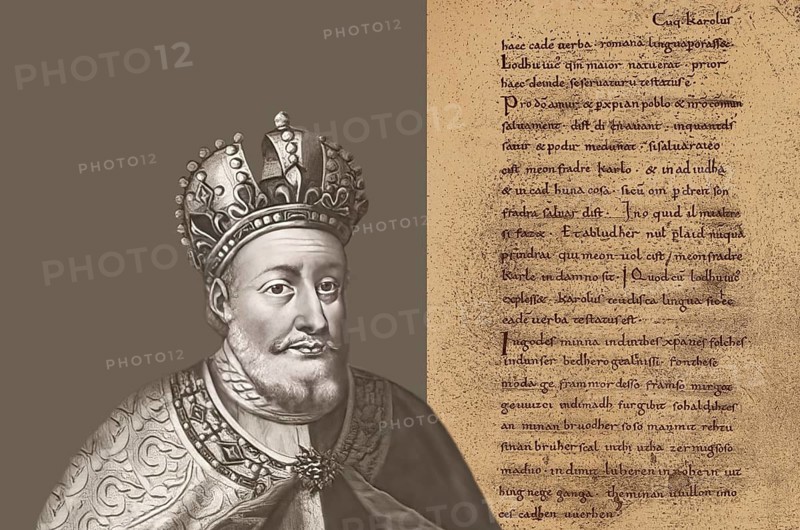 PHOTO12
PHOTO12
PHOTO12
PHOTO12
PHOTO12
PHOTO12
PHOTO12
PHOTO12
PHOTO12
PHOTO12
Cuq. karolus
haec eadē uerba romana lingua
Lodhuuic qm maior natu erat prior
haec deinde se seruaturū testatus ē
Pro dō amur & p xpian poblo & nrō cōmun
saluament dist di in auant inquantds
sauir & podir me dunat si saluarai eo
cist meon fradre karlo & in ad iudha
& in cad huna cosa sicū om p dreit son
fradra saluar dist In o quid il mi altre
si faz& Et ab ludher nul plaid nūquā
prindrai qui meon uol cist meon fradre
karle in damno sit Quod cū lodhuuic
expless& karolus teudisca lingua
eadē uerba testatus est
In godes minna ind in thes xpanes folches
ind unser bedhero gealtnissi fon these
moda ge frammordesso framso mir got
geuuizci indi madh furgibit so hald ih tes
an minan bruodher soso man mit rehtu
sinan bruher scal in thi utha zer mig so so
maduo indi mit luheren in no hein iut
hing nege ganga the minan uuillon imo
ces cadhen uuerhen